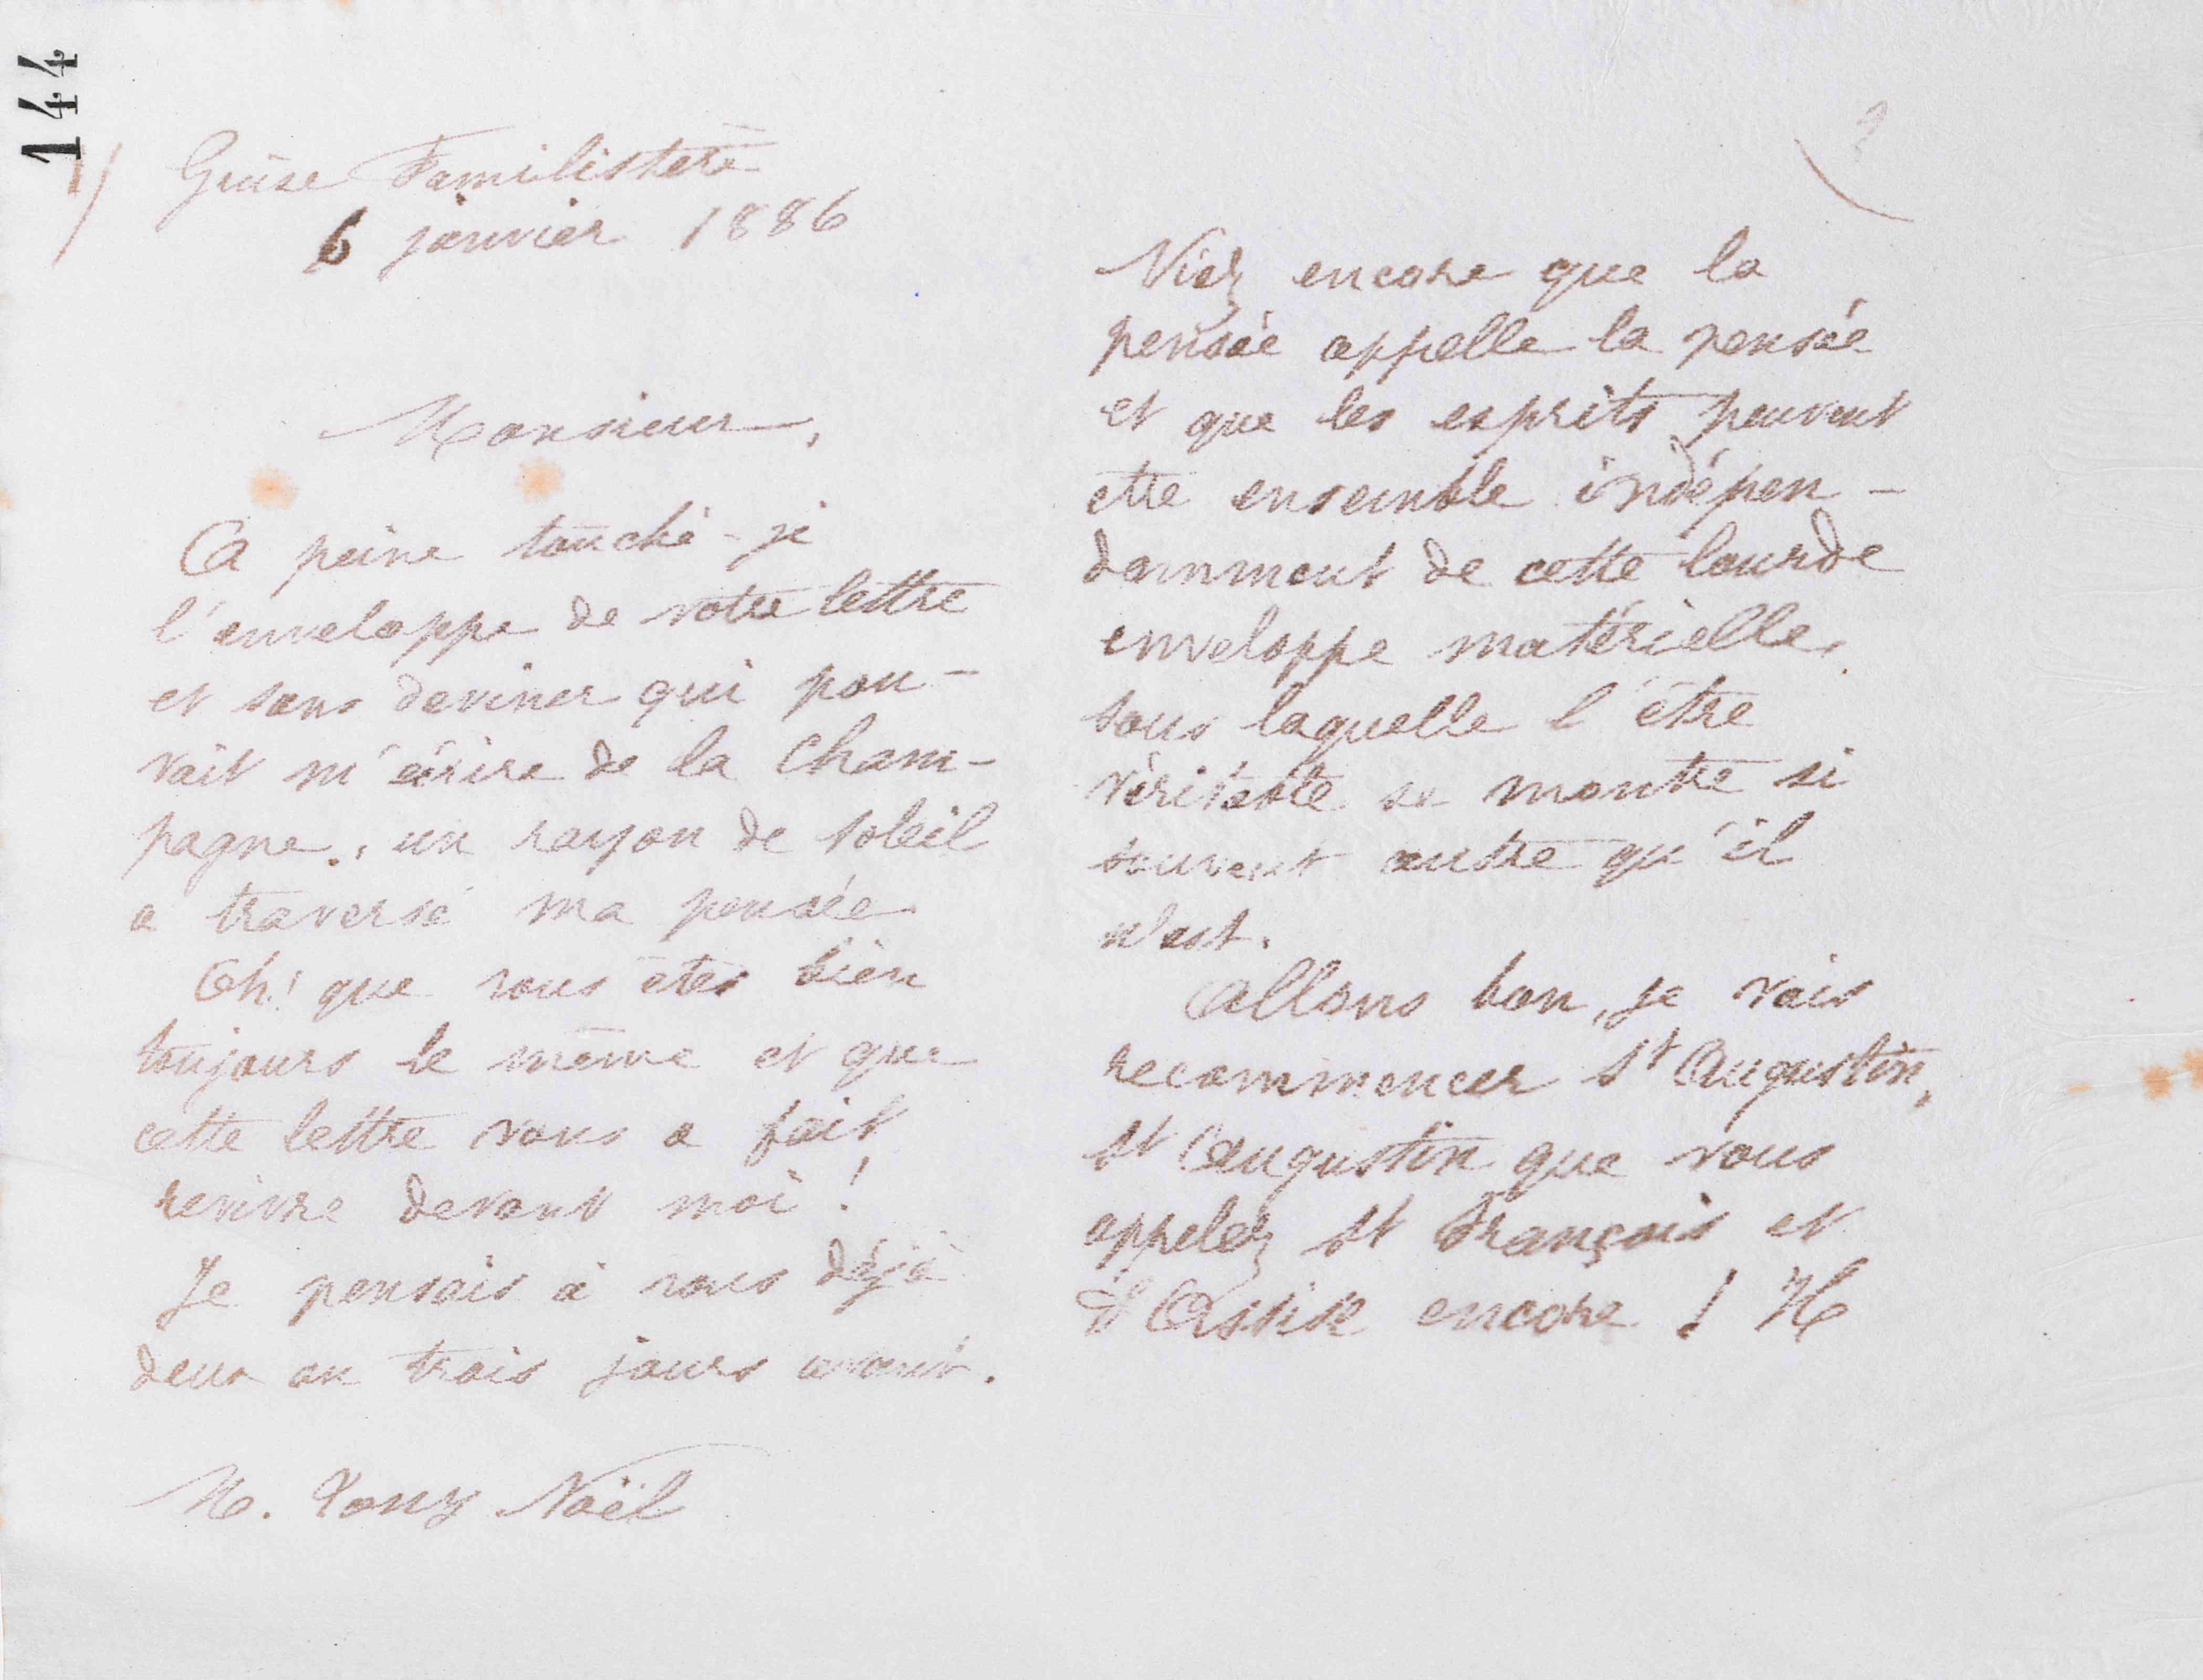 144
Guise Familistère
6 janvier 1886
Monsieur,
A peine touché-je
l'enveloppe de votre lettre
et sans deviner qui pou-
vait m'écrire de la Cham-
pagne, un rayon de soleil
a traversé ma pensée
Oh! que vous êtes bien
toujours le même et que
cette lettre vous a fait
revivre devant moi !
Je pensais à vous déjà
deux ou trois jours avant.
M. Tony Noël
2
Niez encore que la
pensée appelle la pensée
et que les esprits peuvent
être ensemble indépen-
damment de cette lourde
enveloppe matérielle,
sous laquelle l'être
véritable se montre si
souvent autre qu'il
n'est.
Allons bon, je vais
recommencer St Augustin,
St Augustin que vous
appelez St François et
d'Assise encore !